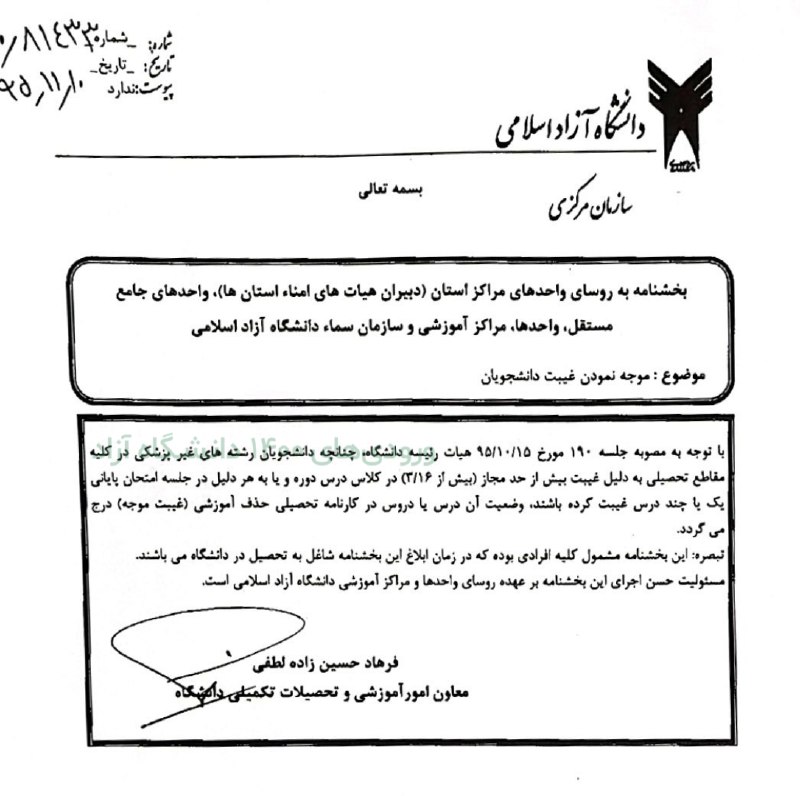 شماره: _شماره ۸۱۴۳۳
تاریخ: _تاریخ_ ۹۵/۱۱/۱۰
پیوست: ندارد
دانشگاه آزاد اسلامی
سازمان مرکزی
بسمه تعالی
بخشنامه به روسای واحدهای مراکز استان (دبیران هیات های امناء استان ها)، واحدهای جامع
مستقل، واحدها، مراکز آموزشی و سازمان سماء دانشگاه آزاد اسلامی
موضوع : موجه نمودن غیبت دانشجویان
ورودی‌های ۱۴۰۰ دانشگاه آزاد
با توجه به مصوبه جلسه ۱۹۰ مورخ ۹۵/۱۰/۱۵ هیات رئیسه دانشگاه، چنانچه دانشجویان رشته های غیر پزشکی در کلیه
مقاطع تحصیلی به دلیل غیبت بیش از حد مجاز (بیش از ۳/۱۶) در کلاس درس دوره و یا به هر دلیل در جلسه امتحان پایانی
یک یا چند درس غیبت کرده باشند، وضعیت آن درس یا دروس در کارنامه تحصیلی حذف آموزشی (غیبت موجه) درج
می گردد.
تبصره: این بخشنامه مشمول کلیه افرادی بوده که در زمان ابلاغ این بخشنامه شاغل به تحصیل در دانشگاه می باشند.
مسئولیت حسن اجرای این بخشنامه بر عهده روسای واحدها و مراکز آموزشی دانشگاه آزاد اسلامی است.
فرهاد حسین زاده لطفی
معاون امورآموزشی و تحصیلات تکمیلی دانشگاه